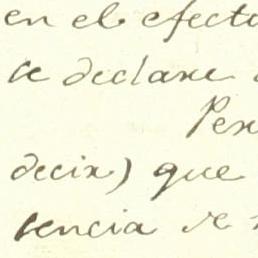 en el efecto
se declare
Per
decir) que
tencia se